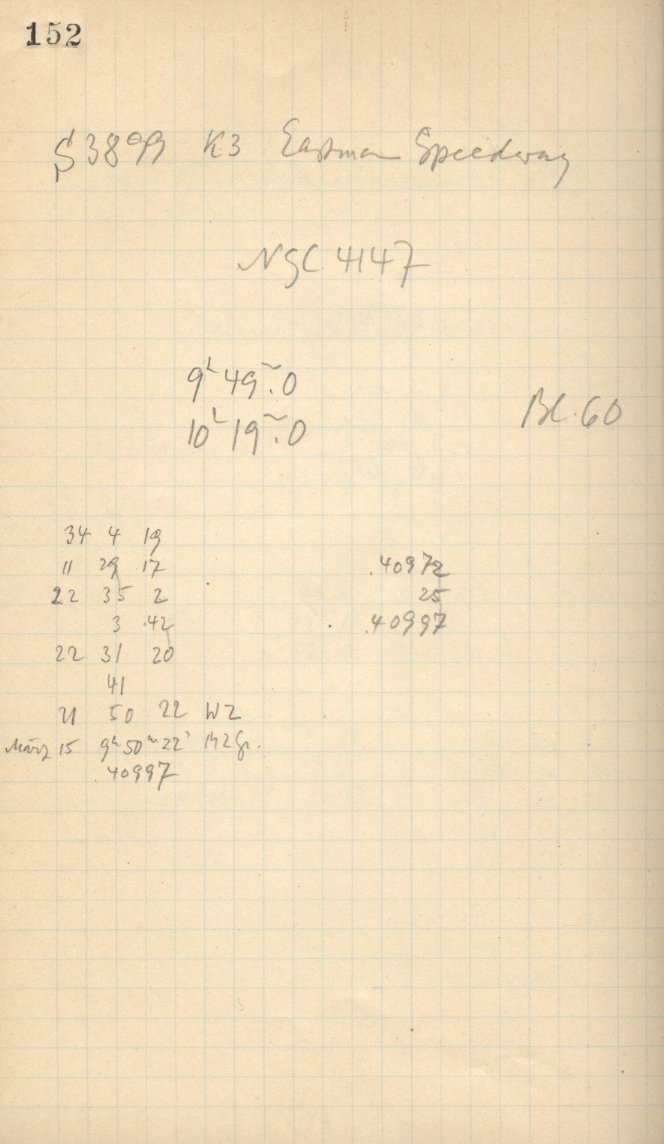 152
S 3899 K3 Eastman Speedway
NGC 4147
9h 49m.0
10h 19m.0
Bl. 60
34 4 19
11 29 17
22 35 2
3 42
22 31 20
41
21 50 22 WZ
März 15 9h 50m 22s MZGr.
.40997
.40972
25
.40997